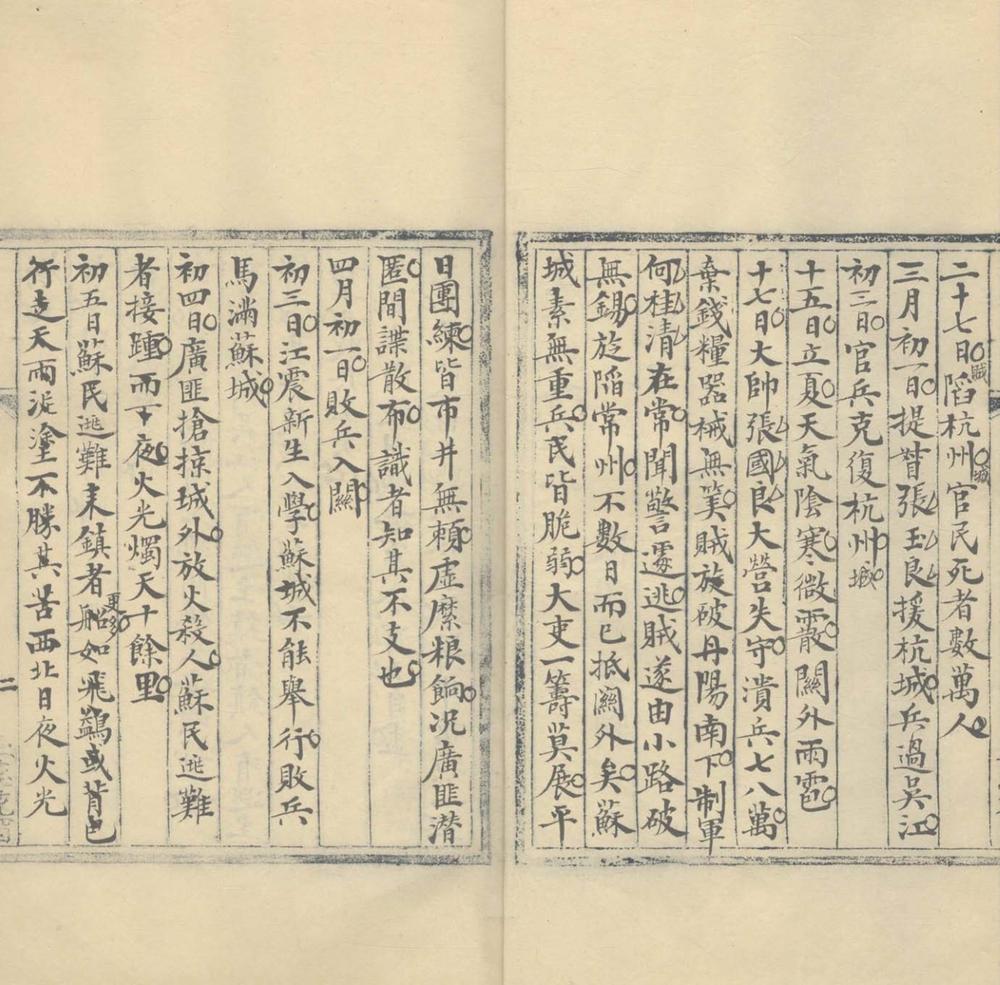 二十七日賊陷杭州城官民死者數萬人
三月初一日提督張玉良援杭城兵過吳江
初三日官兵克復杭州城
十五日立夏天氣陰寒微霰關外雨雹
十七日大帥張國良大營失守潰兵七八萬
棄錢糧器械無筭賊旋破丹陽南下制軍
何桂清在常聞警遽逃賊遂由小路破
無錫旋陷常州不數日而已抵關外矣蘇
城素無重兵民皆脆弱大吏一籌莫展平
日團練皆市井無賴虛縻粮餉况廣匪潛
匿間諜散布識者知其不支也
四月初一日敗兵入關
初三日江震新生入學蘇城不能舉行敗兵
馬滿蘇城
初四日廣匪搶掠城外放火殺人蘇民逃難
者接踵而下夜火光燭天十餘里
初五日蘇民逃難來鎮者更多船如飛鷁或背包
行走天雨泥塗不勝其苦西北日夜火光
二